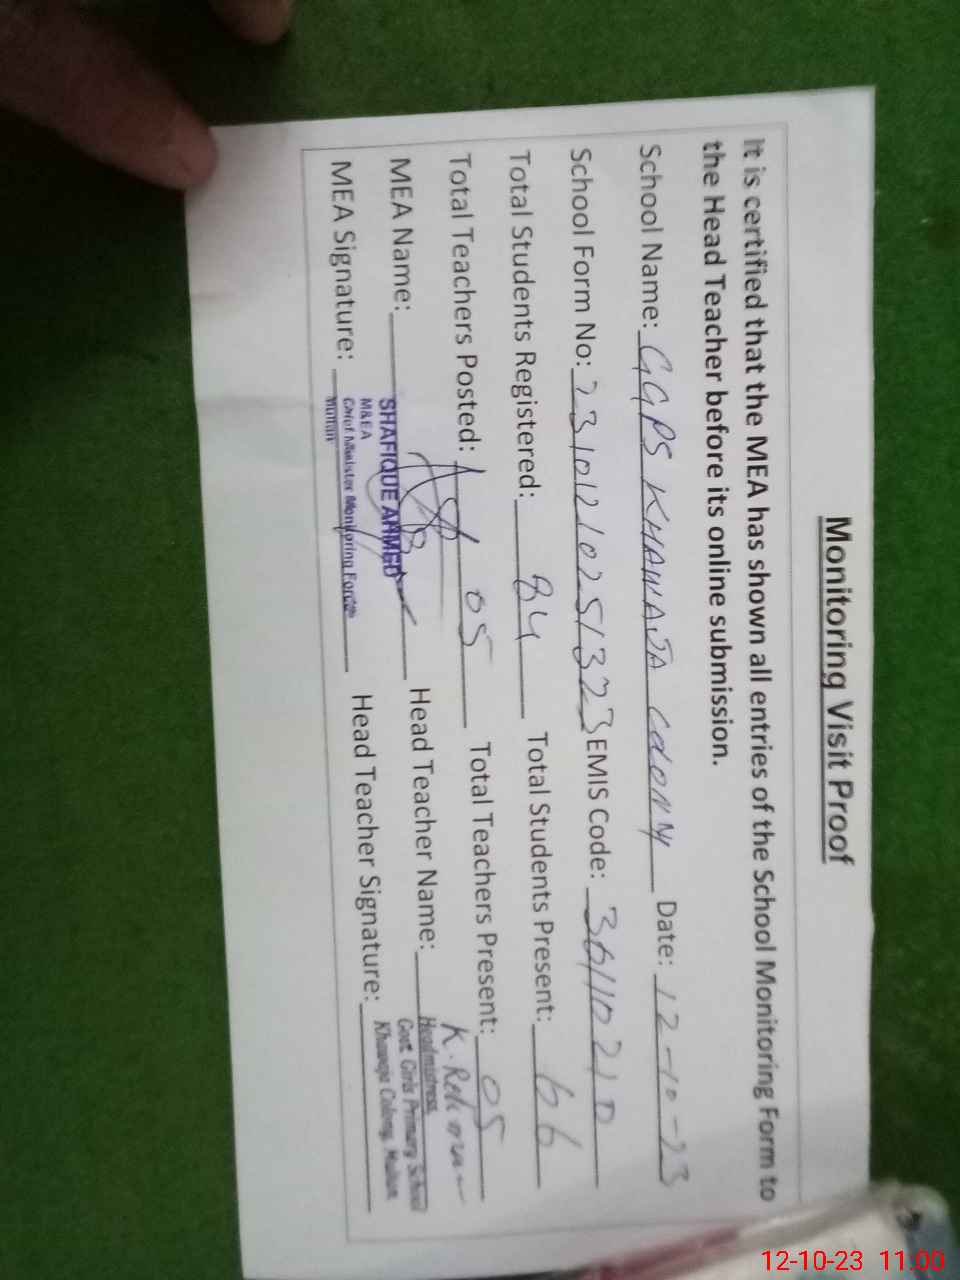 Monitoring Visit Proof
It is certified that the MEA has shown all entries of the School Monitoring Form to
the Head Teacher before its online submission.
School Name: GGPS KHAWAJA COLONY Date: 12-10-23
School Form No: 231012102251323 EMIS Code: 36110210
Total Students Registered: 84 Total Students Present: 66
Total Teachers Posted: 05 Total Teachers Present: 05
MEA Name: SHAFIQUE AHMED Head Teacher Name: K. Rehman
M&EA
Chief Minister Monitoring Force
Multan
MEA Signature: Head Teacher Signature:
Headmistress
Govt. Girls Primary School
Khawaja Colony, Multan
12-10-23 11:00